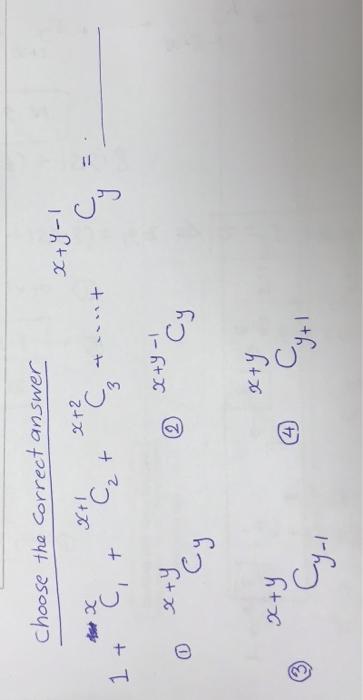 Choose the correct answer
1 + ˣC₁ + ˣ⁺¹C₂ + ˣ⁺²C₃ + ..... + ˣ⁺ʸ⁻¹Cy = ______
① ˣ⁺ʸCy ② ˣ⁺ʸ⁻¹Cy
③ ˣ⁺ʸCy-1 ④ ˣ⁺ʸCy+1